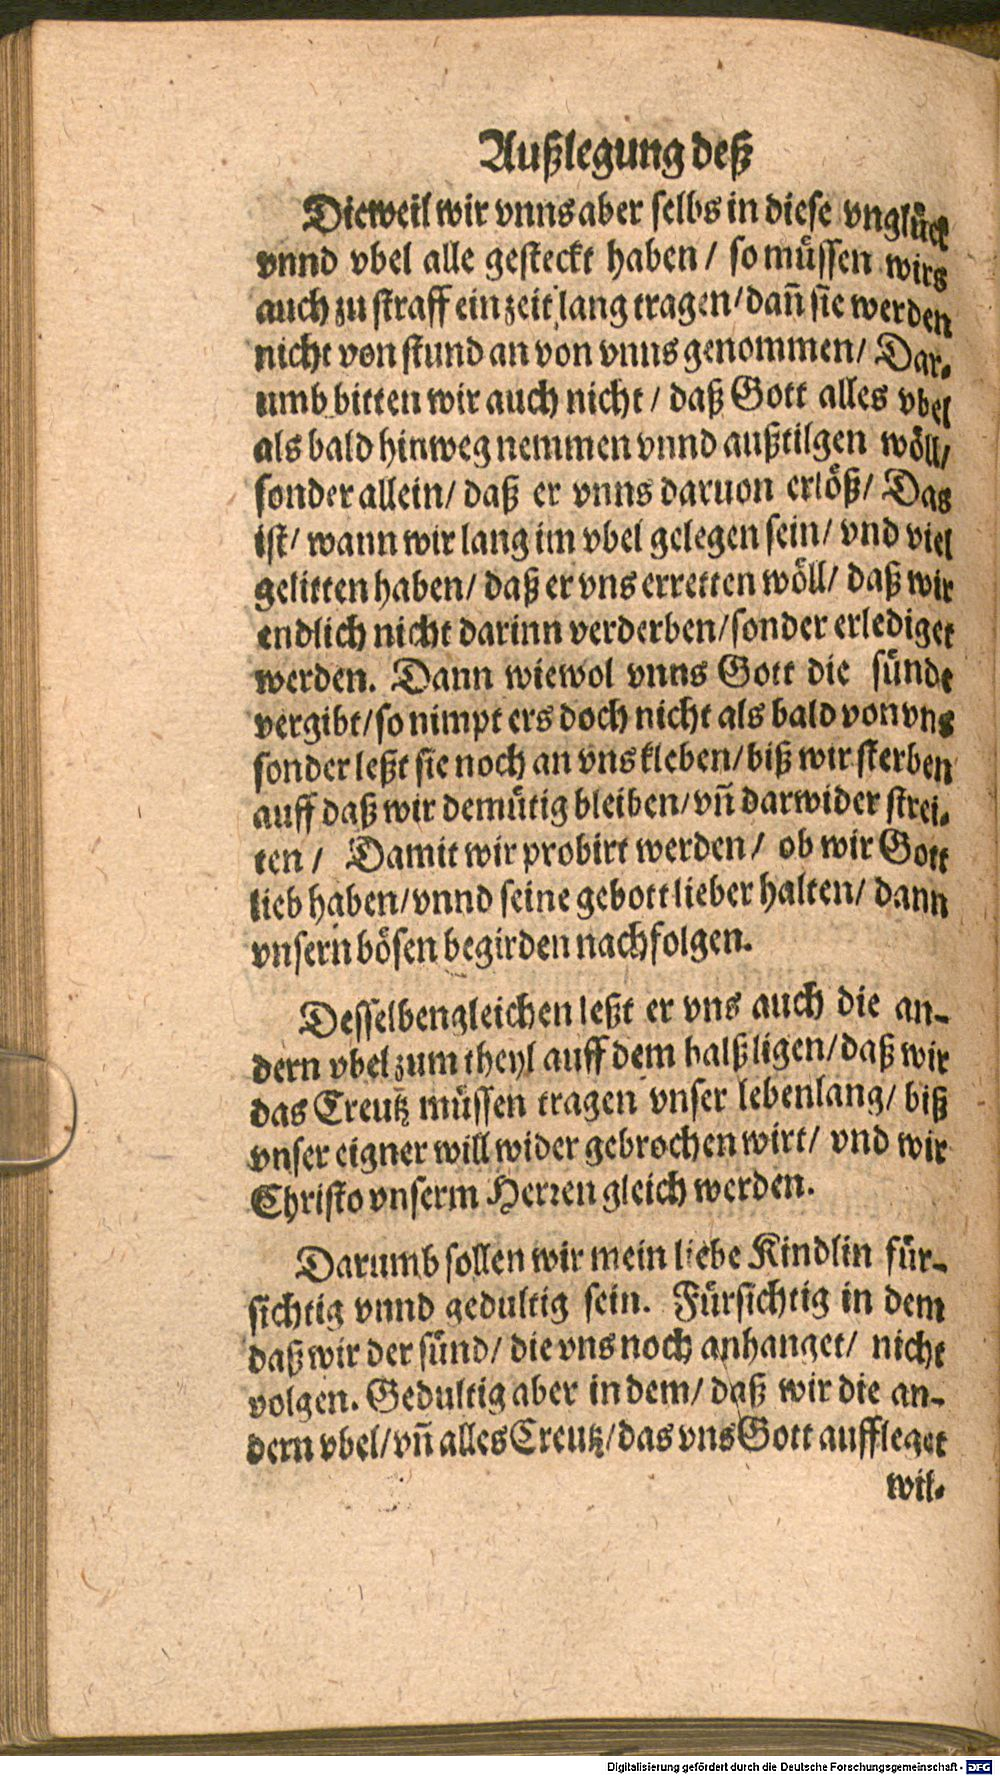 Außlegung deß
Dieweil wir vnns aber selbs in diese vnglück
vnnd vbel alle gesteckt haben / so müssen wirs
auch zu straff ein zeit lang tragen / dañ sie werden
nicht von stund an von vnns genommen / Dar-
umb bitten wir auch nicht / daß Gott alles vbel
als bald hinweg nemmen vnnd außtilgen wöll /
sonder allein / daß er vnns daruon erlöß / Das
ist / wann wir lang im vbel gelegen sein / vnd viel
gelitten haben / daß er vns erretten wöll / daß wir
endlich nicht darinn verderben / sonder erlediget
werden. Dann wiewol vnns Gott die sünde
vergibt / so nimpt ers doch nicht als bald von vns
sonder leßt sie noch an vns kleben / biß wir sterben
auff daß wir demütig bleiben / vñ darwider strei-
ten / Damit wir probirt werden / ob wir Gott
lieb haben / vnnd seine gebott lieber halten / dann
vnsern bösen begirden nachfolgen.
Desselbengleichen leßt er vns auch die an-
dern vbel zum theyl auff dem halß ligen / daß wir
das Creutz müssen tragen vnser lebenlang / biß
vnser eigner will wider gebrochen wirt / vnd wir
Christo vnserm Herren gleich werden.
Darumb sollen wir mein liebe Kindlin für-
sichtig vnnd gedultig sein. Fürsichtig in dem
daß wir der sünd / die vns noch anhanget / nicht
volgen. Gedultig aber in dem / daß wir die an-
dern vbel / vñ alles Creutz / das vns Gott auffleget
wil-
Digitalisierung gefördert durch die Deutsche Forschungsgemeinschaft - DFG